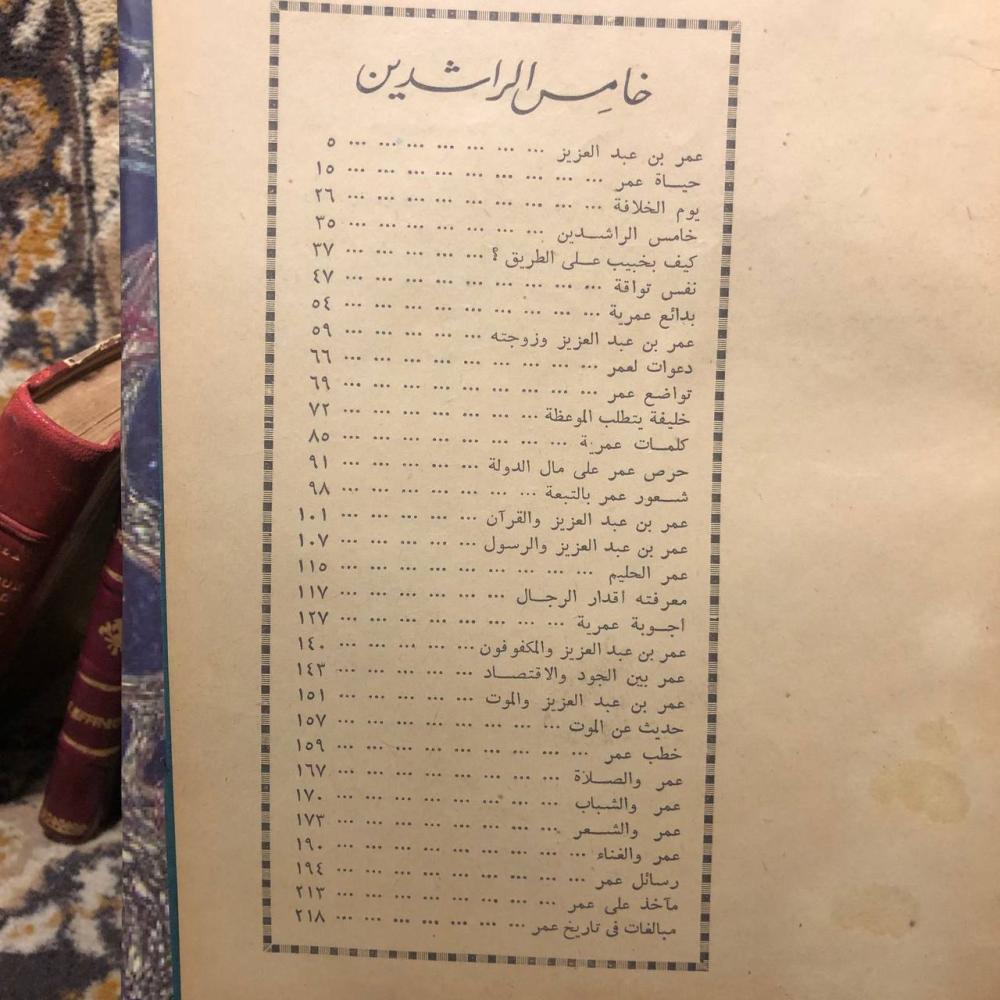 خامس الراشدين
عمر بن عبد العزيز ... ... ... ... ... ... ... ٥
حيـــاة عمر ... ... ... ... ... ... ... ... ... ١٥
يوم الخلافة ... ... ... ... ... ... ... ... ... ٢٦
خامس الراشـــدين ... ... ... ... ... ... ... ٣٥
كيف بخبيب عـــلى الطريق ؟ ... ... ... ... ... ٣٧
نفس تواقة ... ... ... ... ... ... ... ... ... ٤٧
بدائع عمرية ... ... ... ... ... ... ... ... ... ٥٤
عمر بن عبد العزيز وزوجته ... ... ... ... ... ٥٩
دعوات لعمر ... ... ... ... ... ... ... ... ... ٦٦
تواضع عمر ... ... ... ... ... ... ... ... ... ٦٩
خليفة يتطلب الموعظة ... ... ... ... ... ... ... ٧٢
كلمـــات عمرية ... ... ... ... ... ... ... ... ٨٥
حرص عمر على مال الدولة ... ... ... ... ... ٩١
شـــعور عمر بالتبعة ... ... ... ... ... ... ... ٩٨
عمر بن عبد العزيز والقرآن ... ... ... ... ... ١٠١
عمر بن عبد العزيز والرسول ... ... ... ... ... ١٠٧
عمر الحليم ... ... ... ... ... ... ... ... ... ١١٥
معرفته اقدار الرجـــال ... ... ... ... ... ... ١١٧
اجـــوبة عمرية ... ... ... ... ... ... ... ... ١٢٧
عمر بن عبد العزيز والمكفوفون ... ... ... ... ... ١٤٠
عمر بين الجود والاقتصـــاد ... ... ... ... ... ١٤٣
عمر بن عبد العزيز والموت ... ... ... ... ... ١٥١
حديث عن الموت ... ... ... ... ... ... ... ... ١٥٧
خطب عمر ... ... ... ... ... ... ... ... ... ١٥٩
عمر والصـــلاة ... ... ... ... ... ... ... ... ١٦٧
عمر والشباب ... ... ... ... ... ... ... ... ١٧٠
عمر والشـــعر ... ... ... ... ... ... ... ... ١٧٣
عمر والغناء ... ... ... ... ... ... ... ... ... ١٩٠
رسائل عمر ... ... ... ... ... ... ... ... ... ١٩٤
مآخذ على عمر ... ... ... ... ... ... ... ... ٢١٣
مبالغات فى تاريخ عمر ... ... ... ... ... ... ... ٢١٨